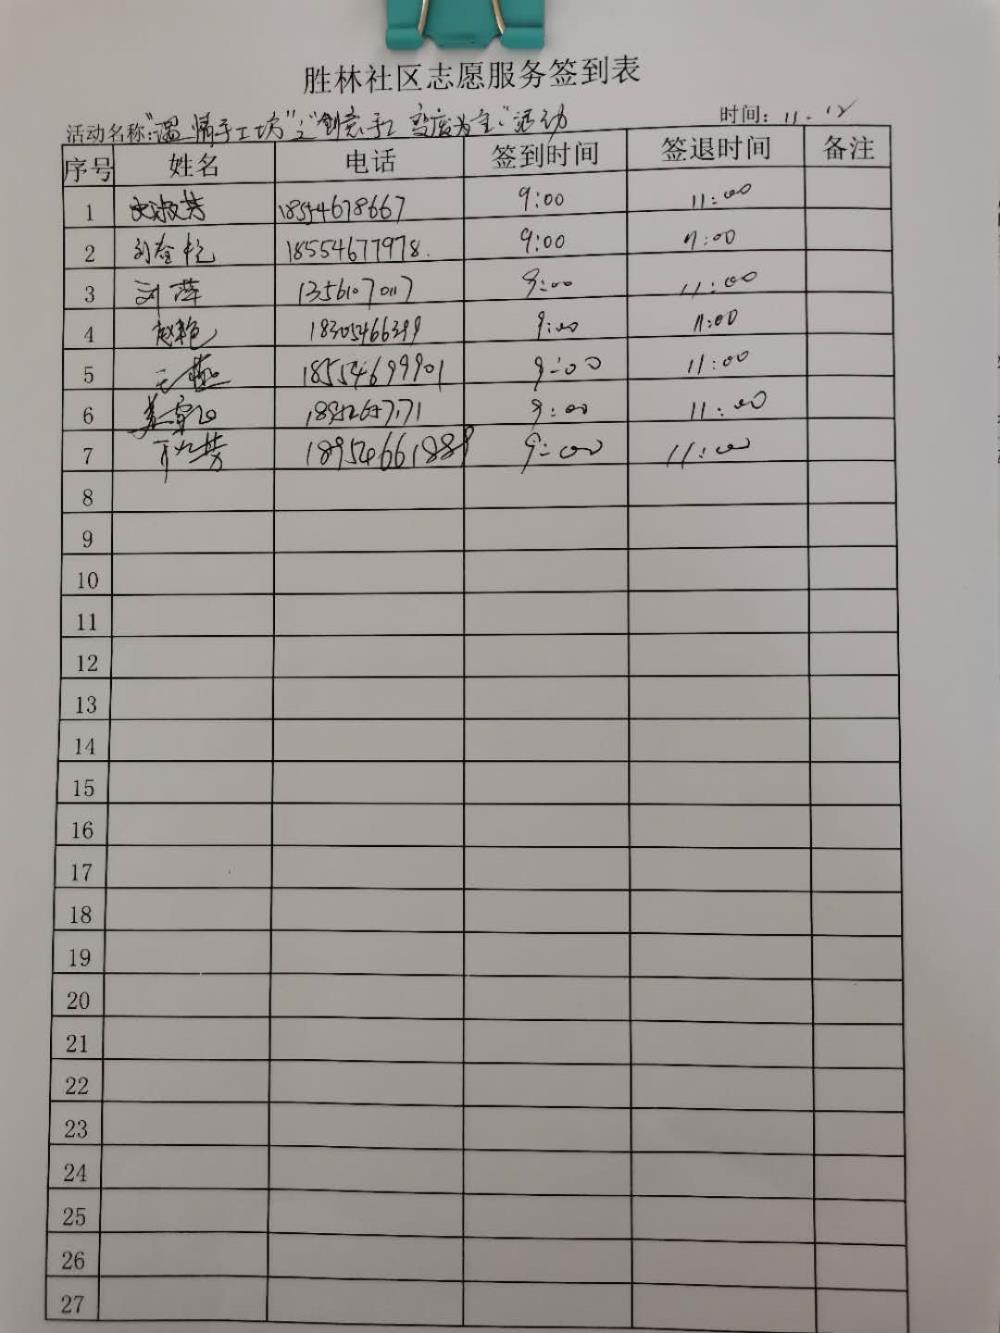 胜林社区志愿服务签到表
活动名称："温情手工坊"之"创意手工 变废为宝"活动 时间：11.12
序号 姓名 电话 签到时间 签退时间 备注
1 史淑芳 18554678667 9:00 11:00
2 刘奎乾 18554677978. 9:00 11:00
3 刘萍 13561070117 9:00 11:00
4 赵艳 18305466399 9:00 11:00
5 王燕 18554699901 9:00 11:00
6 9:00 11:00
7 18954661889 9:00 11:00
8
9
10
11
12
13
14
15
16
17
18
19
20
21
22
23
24
25
26
27